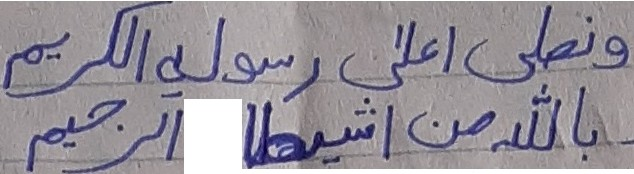 ونصلى اعلى رسوله الكريم
بالله من اشيطا الرجيم